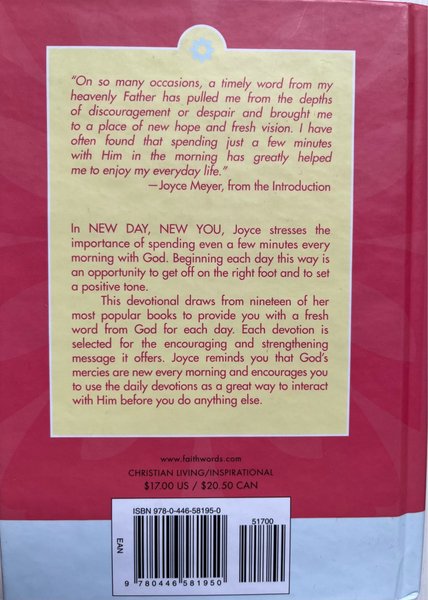 “On so many occasions, a timely word from my
heavenly Father has pulled me from the depths
of discouragement or despair and brought me
to a place of new hope and fresh vision. I have
often found that spending just a few minutes
with Him in the morning has greatly helped
me to enjoy my everyday life.”
—Joyce Meyer, from the Introduction
In NEW DAY, NEW YOU, Joyce stresses the
importance of spending even a few minutes every
morning with God. Beginning each day this way is
an opportunity to get off on the right foot and to set
a positive tone.
This devotional draws from nineteen of her
most popular books to provide you with a fresh
word from God for each day. Each devotion is
selected for the encouraging and strengthening
message it offers. Joyce reminds you that God’s
mercies are new every morning and encourages you
to use the daily devotions as a great way to interact
with Him before you do anything else.
www.faithwords.com
CHRISTIAN LIVING/INSPIRATIONAL
$17.00 US / $20.50 CAN
ISBN 978-0-446-58195-0
51700
EAN
9 780446 581950